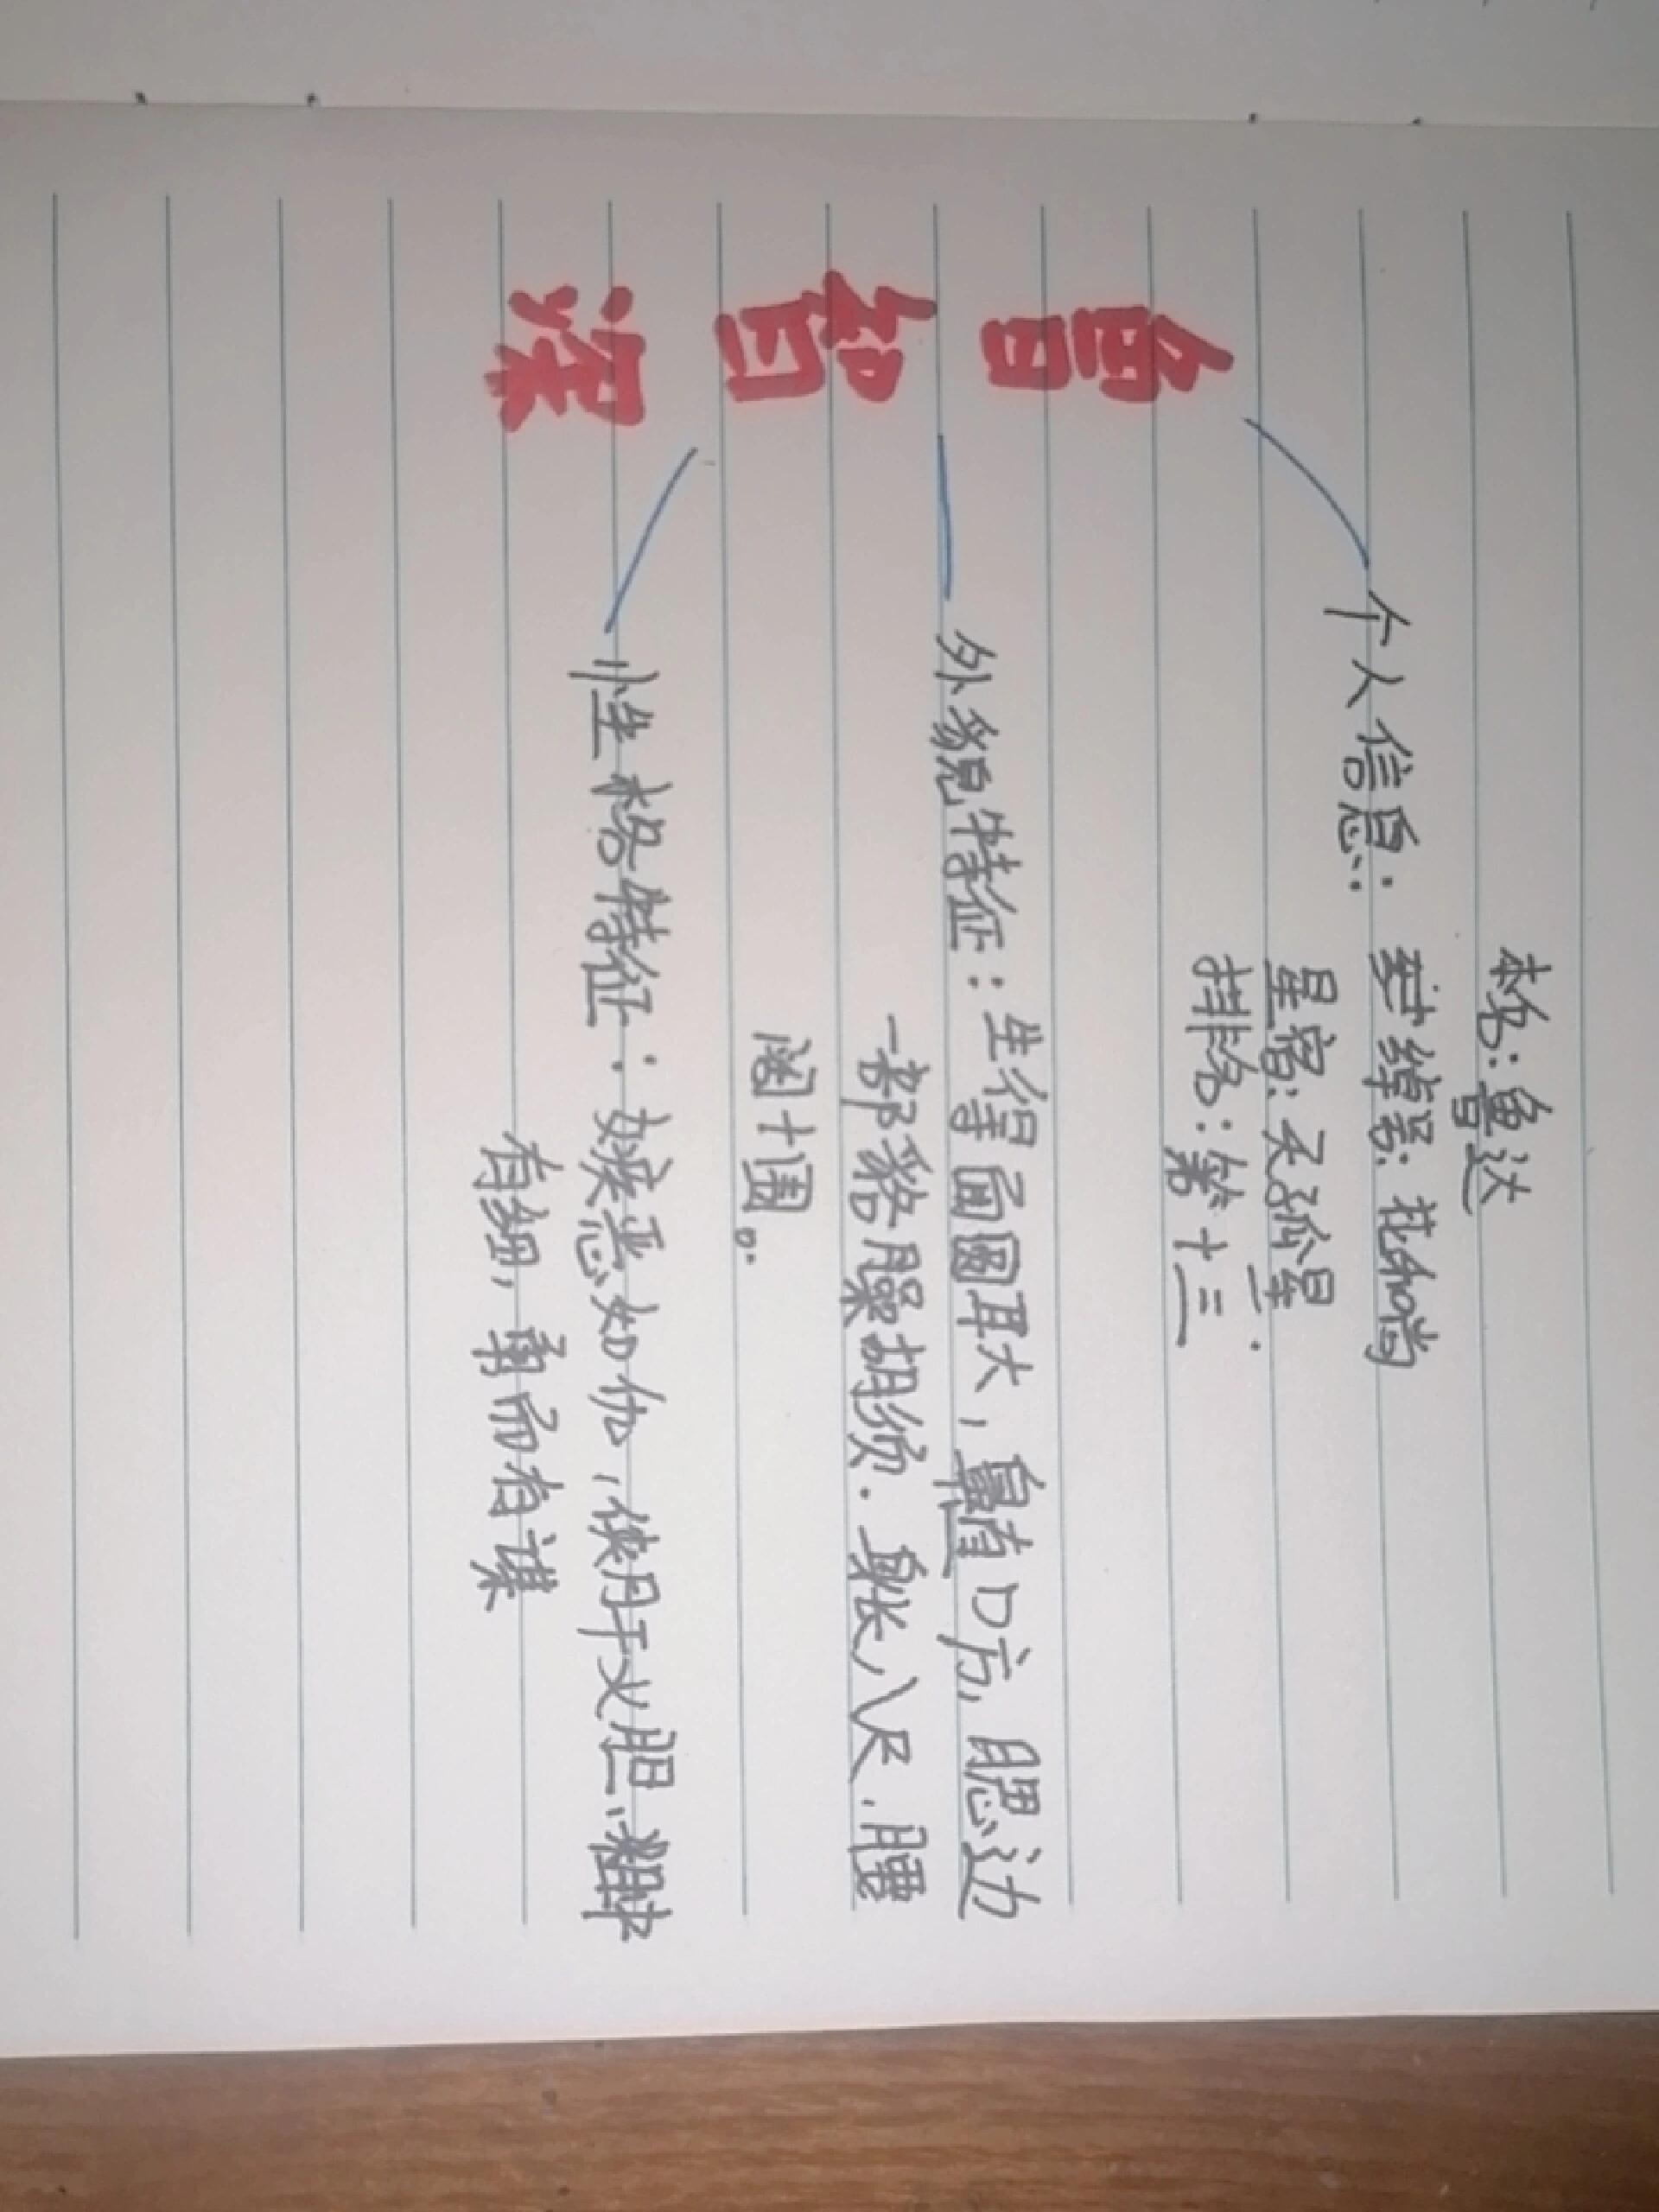 鲁智深
个人信息:
本名:鲁达
绰号:花和尚
星宿:天孤星
排名:第十三
外貌特征:生得面圆耳大,鼻直口方,腮边
一部貉臊胡须.身长八尺,腰
阔十围。
性格特征:嫉恶如仇,侠肝义胆,粗中
有细,勇而有谋